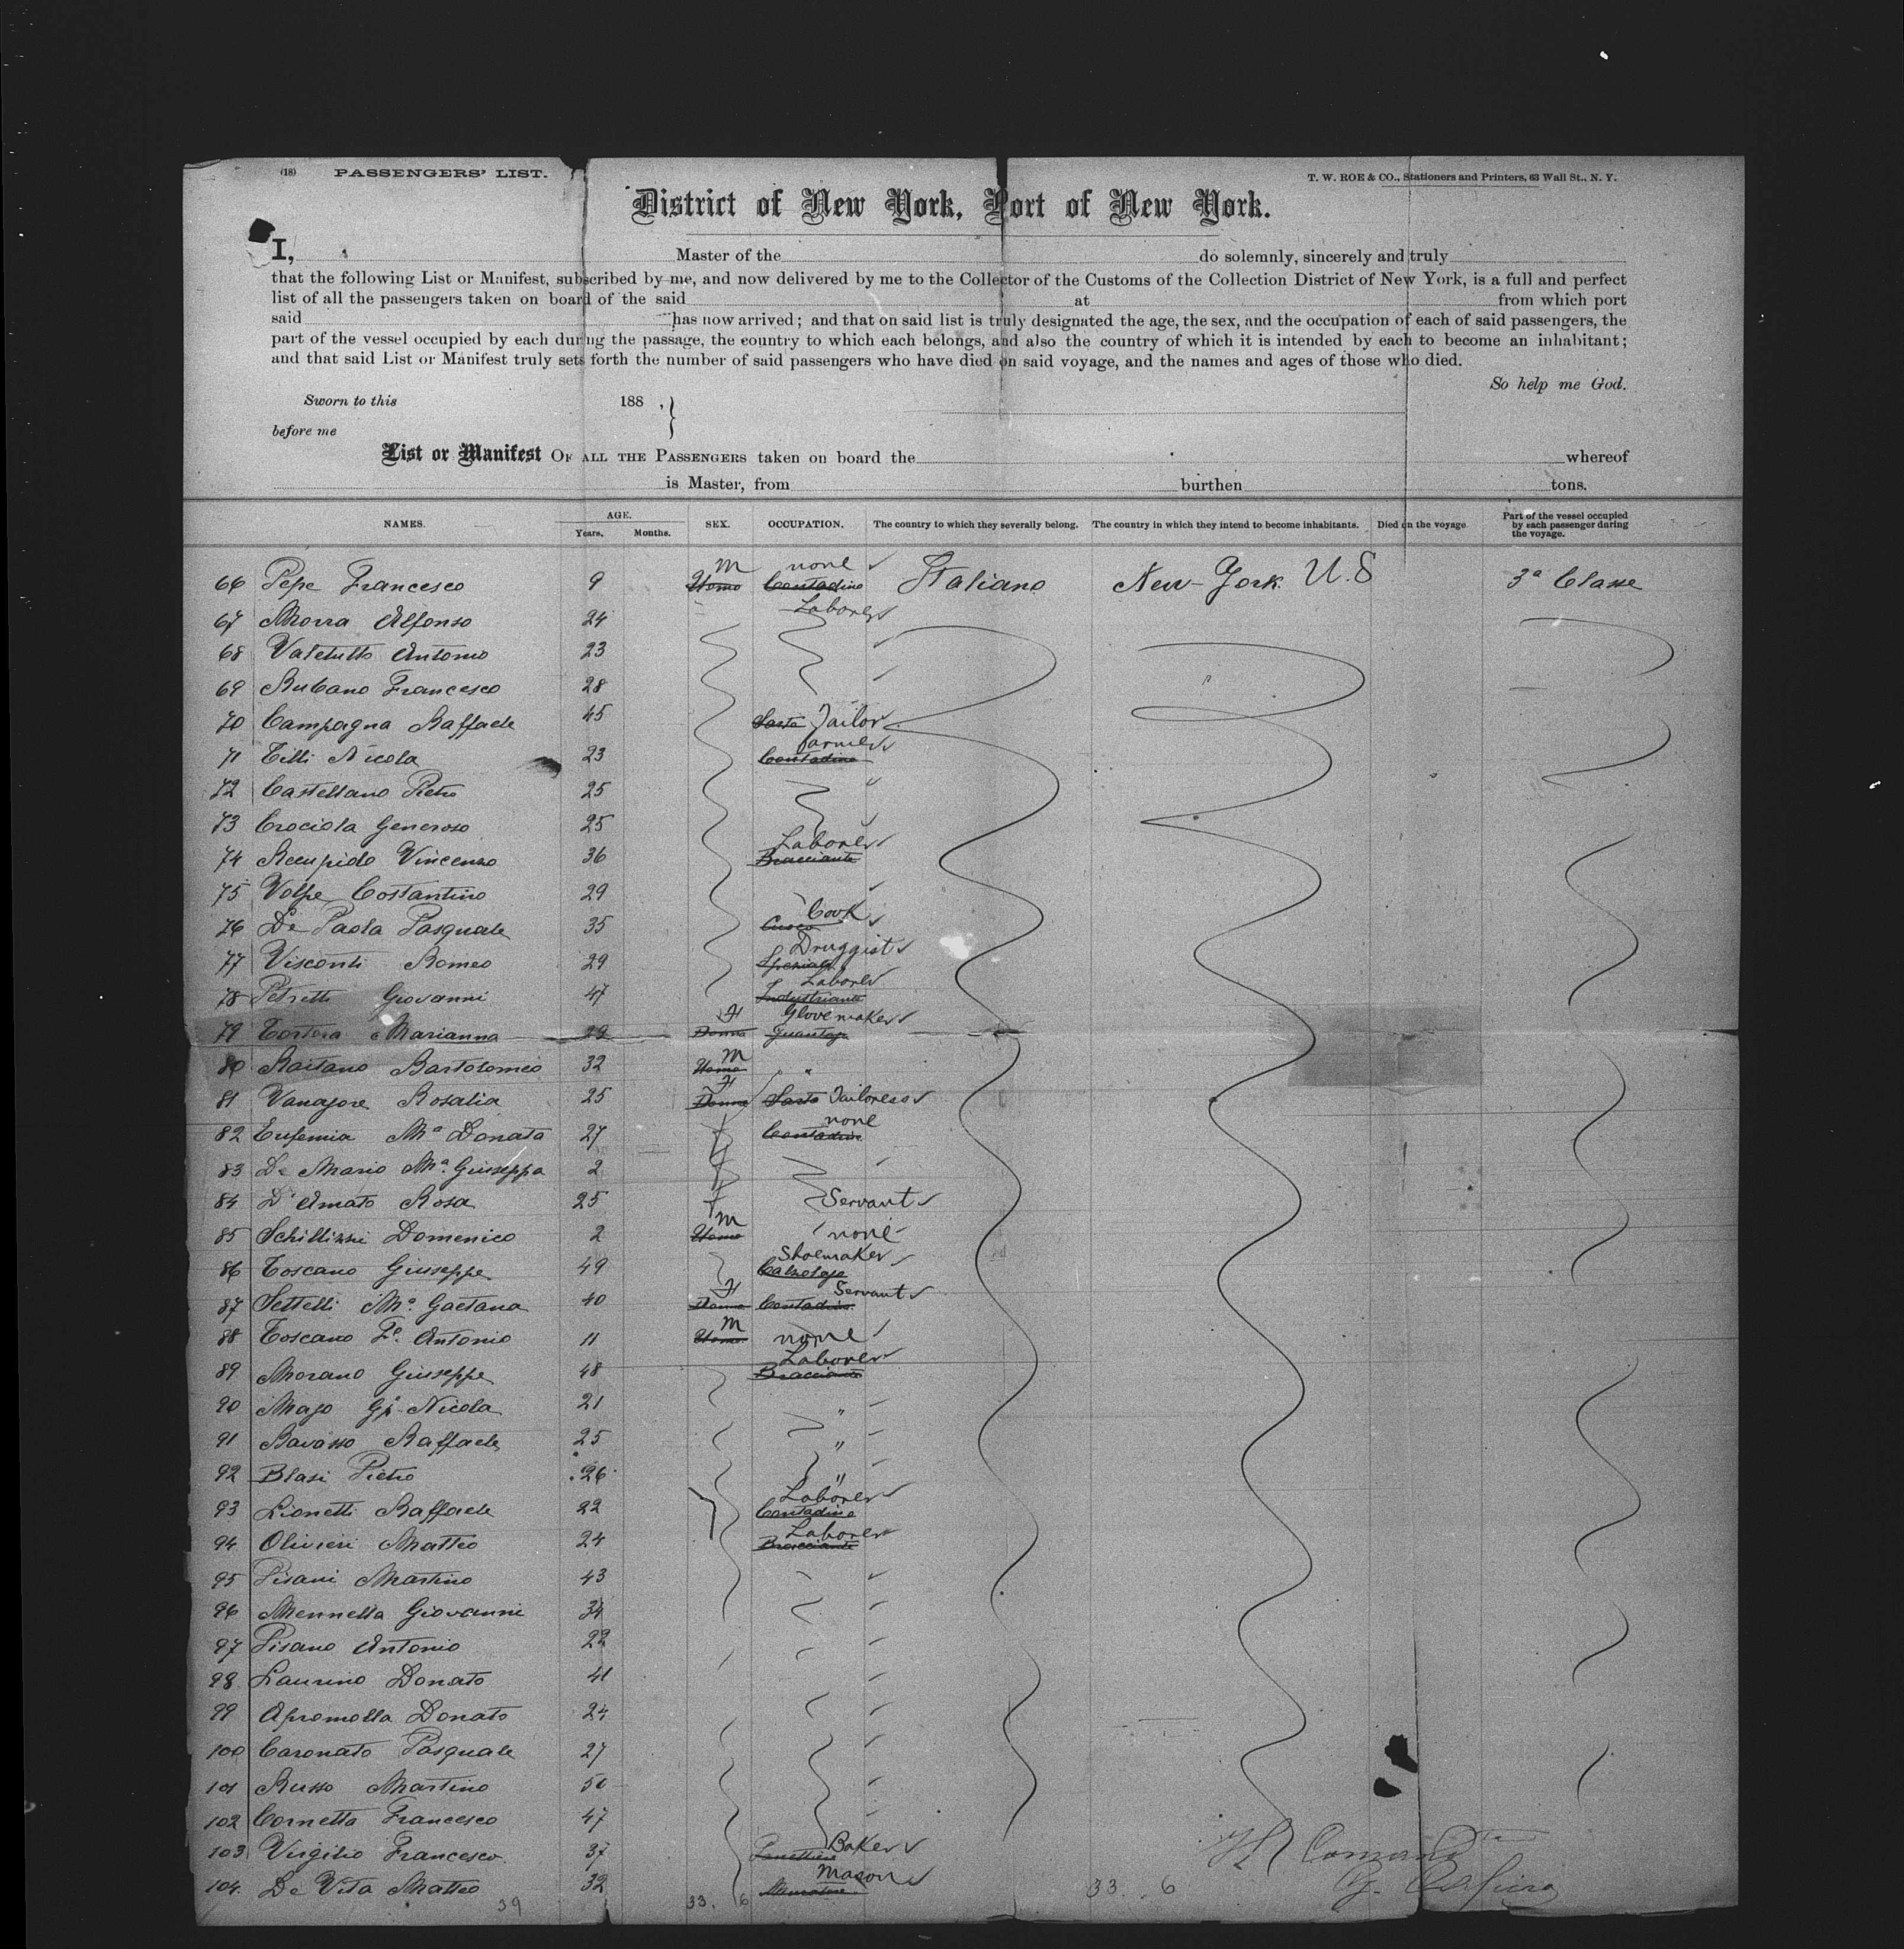 (18) PASSENGERS' LIST. T. W. ROE & CO., Stationers and Printers, 63 Wall St., N. Y.
District of New York, Port of New York.
I, Master of the do solemnly, sincerely and truly
that the following List or Manifest, subscribed by me, and now delivered by me to the Collector of the Customs of the Collection District of New York, is a full and perfect
list of all the passengers taken on board of the said at from which port
said has now arrived; and that on said list is truly designated the age, the sex, and the occupation of each of said passengers, the
part of the vessel occupied by each during the passage, the country to which each belongs, and also the country of which it is intended by each to become an inhabitant;
and that said List or Manifest truly sets forth the number of said passengers who have died on said voyage, and the names and ages of those who died.
So help me God.
Sworn to this 188 ,
before me
List or Manifest OF ALL THE PASSENGERS taken on board the whereof
is Master, from burthen tons.
NAMES. AGE. Years. Months. SEX. OCCUPATION. The country to which they severally belong. The country in which they intend to become inhabitants. Died on the voyage. Part of the vessel occupied by each passenger during the voyage.
66 Pepe Francesco 9 Uomo M Contadino none Italiano New-York U.S 3a Classe
67 Morra Alfonso 24 Laborer
68 Valetutto Antonio 23
69 Rubano Francesco 28
70 Campagna Raffaele 45 Sarto Tailor
71 Tilli Nicola 23 Contadino farmer
72 Castellano Pietro 25 "
73 Crociola Generoso 25
74 Recupido Vincenzo 36 Bracciante Laborer
75 Volpe Costantino 29
76 De Paola Pasquale 35 Cuoco Cook
77 Visconti Romeo 29 Speziale Druggist
78 Petretti Giovanni 47 Industriante Laborer
79 Tortora Marianna 29 Donna F Guantaja Glovemaker
80 Raitano Bartolomeo 32 Uomo M "
81 Vanajore Rosalia 25 Donna F Sarto Tailoress
82 Eufemia Ma Donata 27 Contadina none
83 De Mario Ma. Giuseppa 2
84 D'Amato Rosa 25 Servant
85 Schillizzi Domenico 2 Uomo M none
86 Toscano Giuseppe 49 Calzolajo Shoemaker
87 Settelli Ma. Gaetana 40 Donna F Contadina Servant
88 Toscano Fo. Antonio 11 Uomo M none
89 Morano Giuseppe 48 Bracciante Laborer
90 Mago Gi. Nicola 21 "
91 Bavosso Raffaele 25 "
92 Blasi Pietro 26 "
93 Lionetti Raffaele 22 Contadino Laborer
94 Olivieri Matteo 24 Bracciante Laborer
95 Pisani Martino 43
96 Mennella Giovanni 34
97 Pisano Antonio 22
98 Laurino Donato 41
99 Apromolla Donato 24
100 Caronato Pasquale 27
101 Russo Martino 50
102 Cornetta Francesco 47
103 Virgilio Francesco 37 Panettiere Baker
104. De Vita Matteo 32 Muratore Mason
39 33. 6 33. 6
Il Comandte
G.